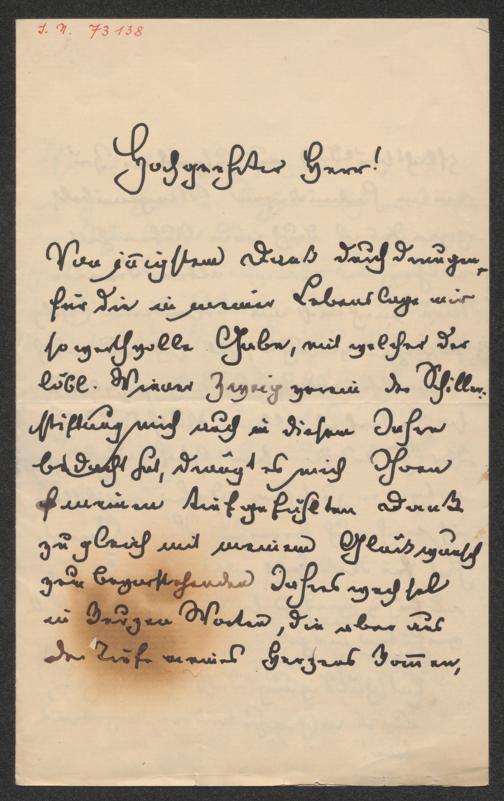 I. N. 73138
Hochgeehrter Herr!
Von innigstem Dank durchdrungen,
für die in meiner Lebenslage mir
so werthvolle Gabe, mit welcher der
löbl. Wiener Zweigverein der Schiller-
stiftung mich auch in diesem Jahre
bedacht hat, drängt es mich Ihnen
meinen tiefgefühlten Dank
zugleich mit meinem Glückwunsch
zum bevorstehenden Jahreswechsel
in kurzen Worten, die aber aus
der Tiefe meines Herzens kommen,